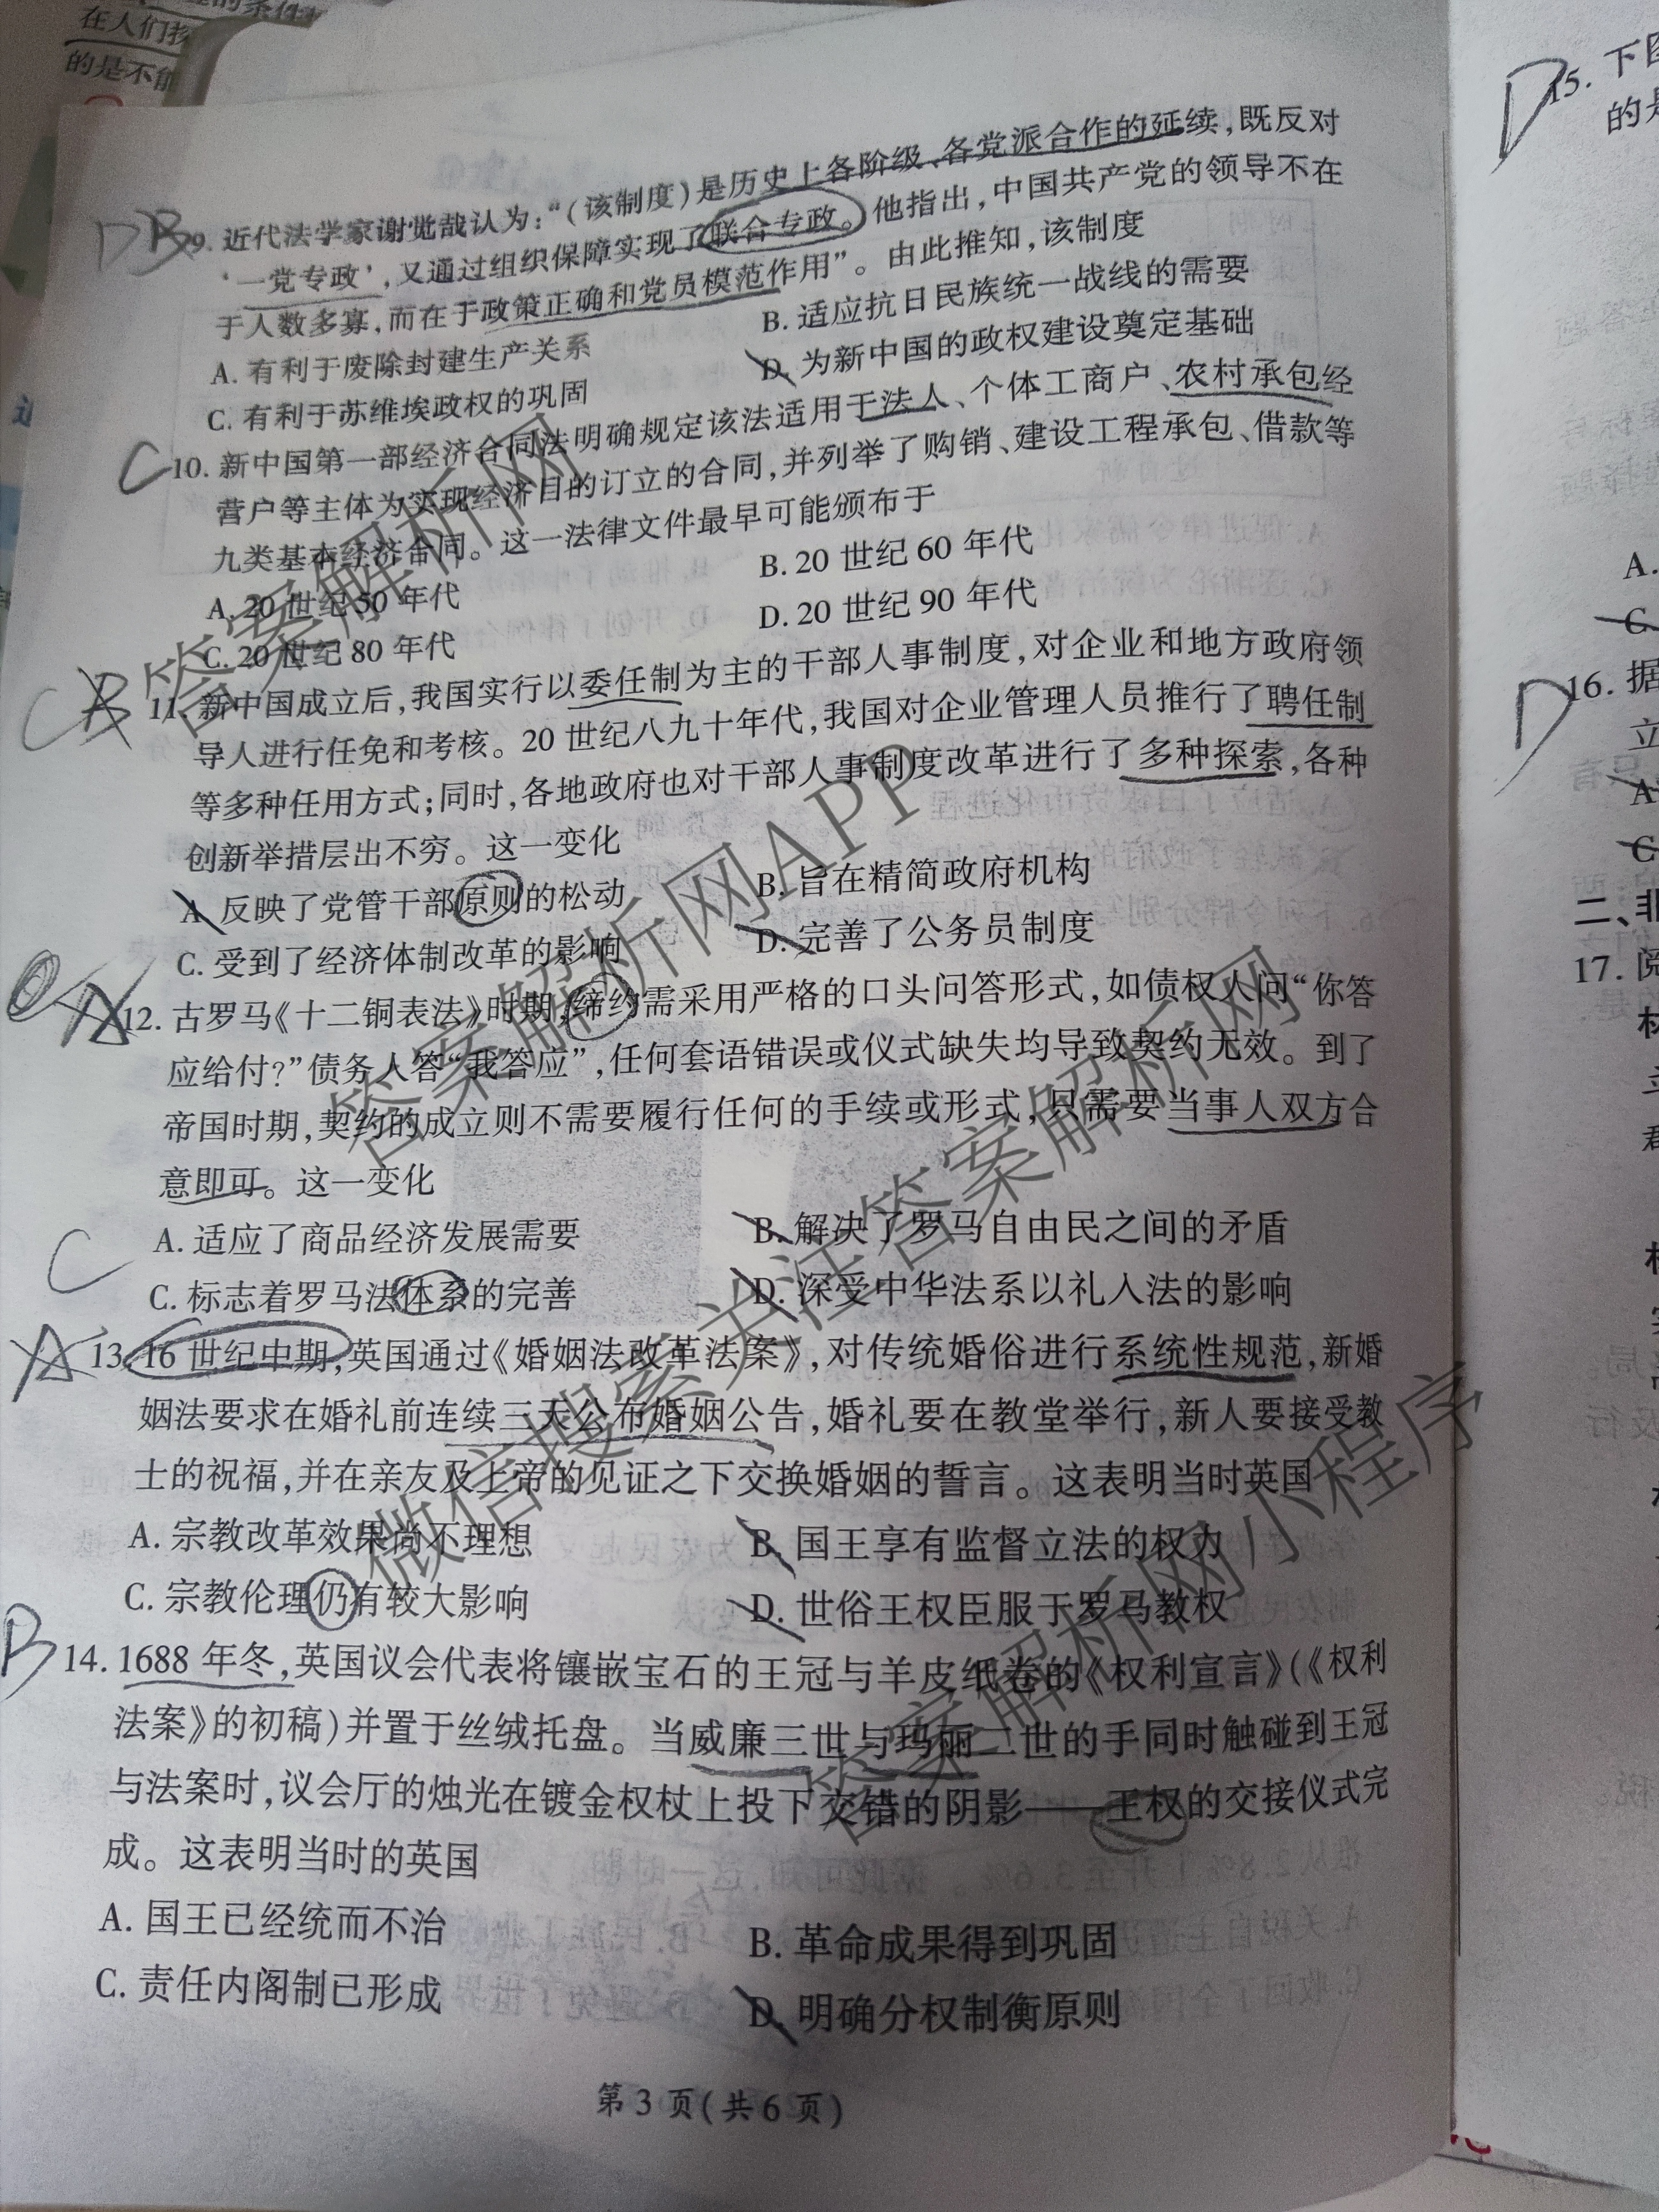 在人们扬
的是不能
9. 近代法学家谢觉哉认为：“（该制度）是历史上各阶级、各党派合作的延续，既反对
‘一党专政’，又通过组织保障实现了联合专政。他指出，中国共产党的领导不在
于人数多寡，而在于政策正确和党员模范作用”。由此推知，该制度
A. 有利于废除封建生产关系
B. 适应抗日民族统一战线的需要
C. 有利于苏维埃政权的巩固
D. 为新中国的政权建设奠定基础
C
10. 新中国第一部经济合同法明确规定该法适用于法人、个体工商户、农村承包经
营户等主体为实现经济目的订立的合同，并列举了购销、建设工程承包、借款等
九类基本经济合同。这一法律文件最早可能颁布于
A. 20 世纪 50 年代
B. 20 世纪 60 年代
C. 20 世纪 80 年代
D. 20 世纪 90 年代
C
11. 新中国成立后，我国实行以委任制为主的干部人事制度，对企业和地方政府领
导人进行任免和考核。20 世纪八九十年代，我国对企业管理人员推行了聘任制
等多种任用方式；同时，各地政府也对干部人事制度改革进行了多种探索，各种
创新举措层出不穷。这一变化
A. 反映了党管干部原则的松动
B. 旨在精简政府机构
C. 受到了经济体制改革的影响
D. 完善了公务员制度
12. 古罗马《十二铜表法》时期，缔约需采用严格的口头问答形式，如债权人问“你答
应给付？”债务人答“我答应”，任何套语错误或仪式缺失均导致契约无效。到了
帝国时期，契约的成立则不需要履行任何的手续或形式，只需要当事人双方合
意即可。这一变化
A. 适应了商品经济发展需要
B. 解决了罗马自由民之间的矛盾
C. 标志着罗马法体系的完善
D. 深受中华法系以礼入法的影响
C
13. 16 世纪中期，英国通过《婚姻法改革法案》，对传统婚俗进行系统性规范，新婚
姻法要求在婚礼前连续三天公布婚姻公告，婚礼要在教堂举行，新人要接受教
士的祝福，并在亲友及上帝的见证之下交换婚姻的誓言。这表明当时英国
A. 宗教改革效果尚不理想
B. 国王享有监督立法的权力
C. 宗教伦理仍有较大影响
D. 世俗王权臣服于罗马教权
B
14. 1688 年冬，英国议会代表将镶嵌宝石的王冠与羊皮纸卷的《权利宣言》（《权利
法案》的初稿）并置于丝绒托盘。当威廉三世与玛丽二世的手同时触碰到王冠
与法案时，议会厅的烛光在镀金权杖上投下交错的阴影——王权的交接仪式完
成。这表明当时的英国
A. 国王已经统而不治
B. 革命成果得到巩固
C. 责任内阁制已形成
D. 明确分权制衡原则
第 3 页（共 6 页）
D
15. 下图
的是
A.
C.
D
16. 据
立
A
C
二、非
17. 阅
答案解析网
答案解析网APP
微信搜索关注答案解析网
答案解析网小程序